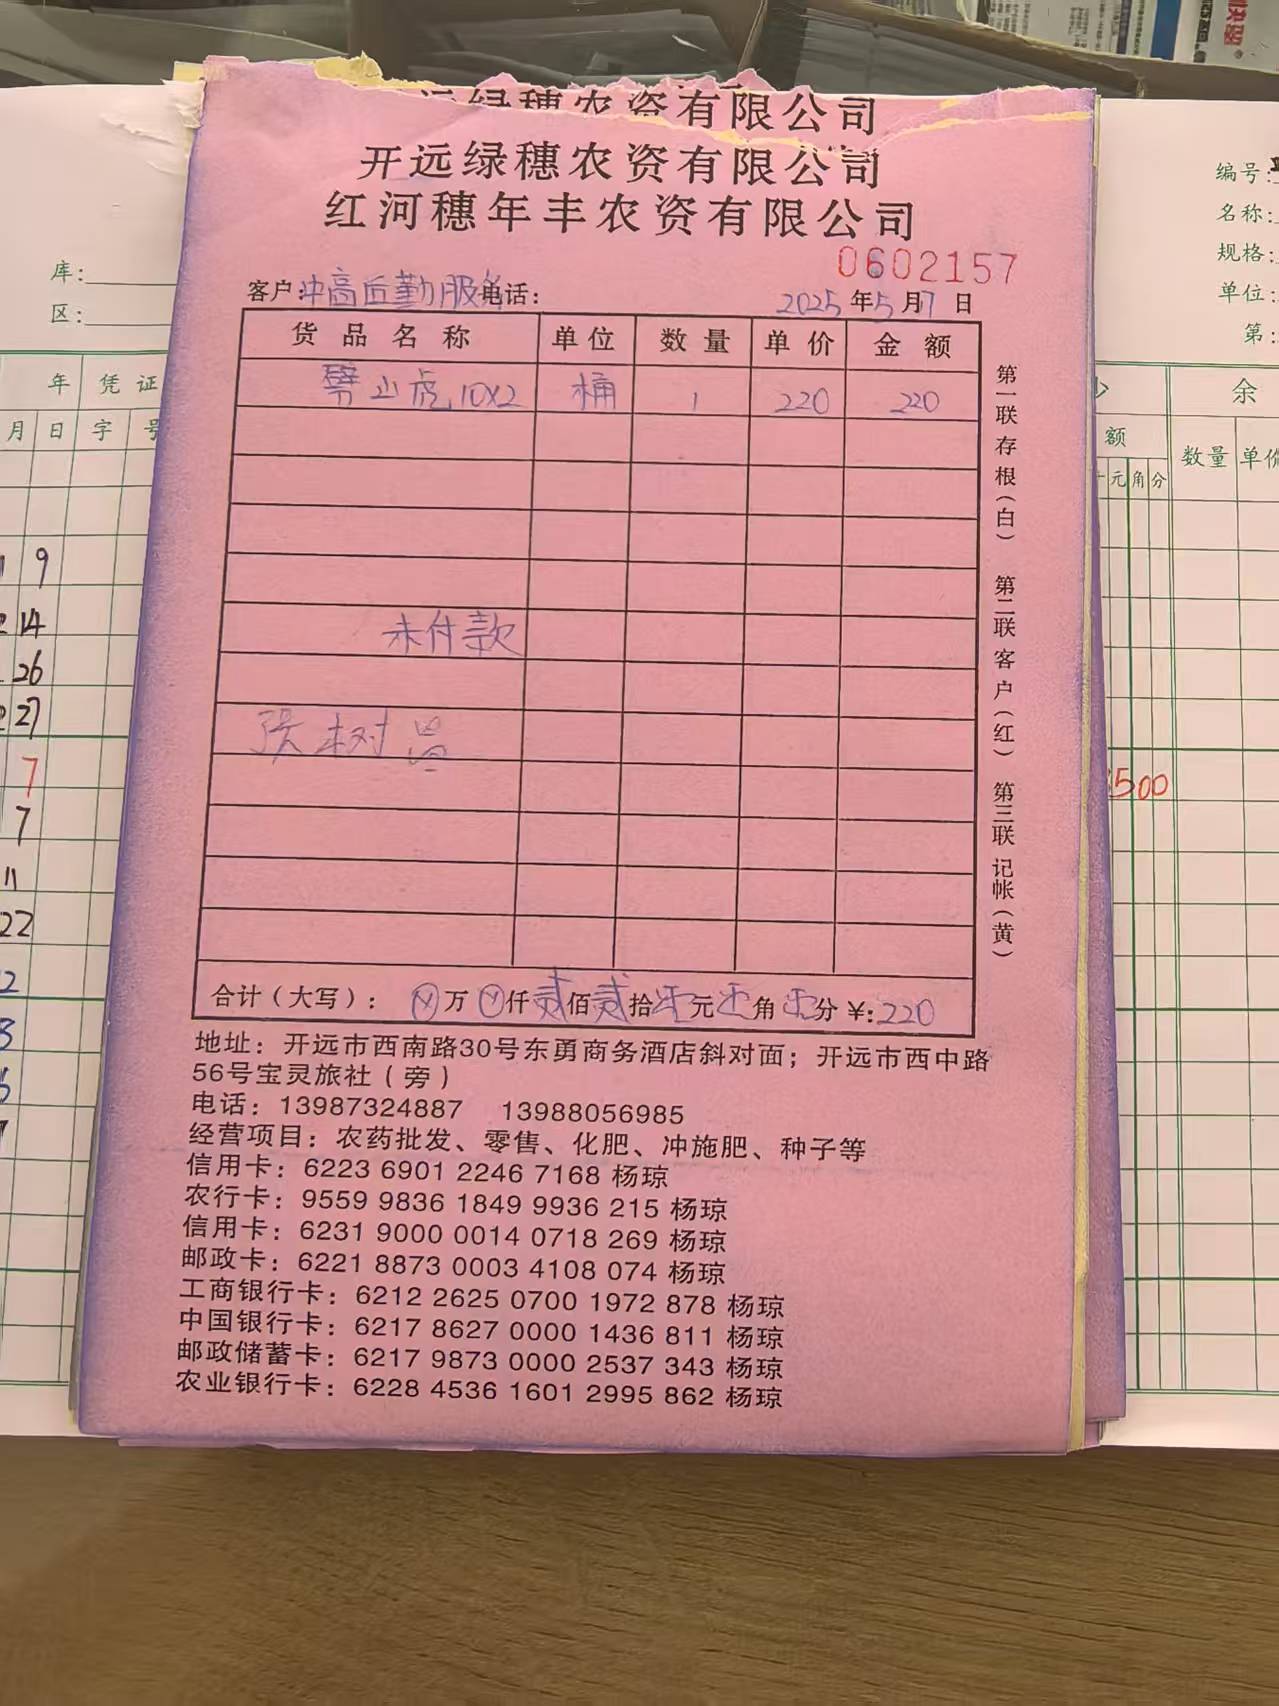 远绿穗农资有限公司
开远绿穗农资有限公司
红河穗年丰农资有限公司
0602157
客户：冲高后勤服务 电话：
2025年5月7日
货品名称 单位 数量 单价 金额
劈山虎10X2 桶 1 220 220
未付款
张树
合计（大写）：万仟贰佰贰拾元角分￥：220
第一联存根（白） 第二联客户（红） 第三联记帐（黄）
地址：开远市西南路30号东勇商务酒店斜对面；开远市西中路
56号宝灵旅社（旁）
电话：13987324887 13988056985
经营项目：农药批发、零售、化肥、冲施肥、种子等
信用卡：6223 6901 2246 7168 杨琼
农行卡：9559 9836 1849 9936 215 杨琼
信用卡：6231 9000 0014 0718 269 杨琼
邮政卡：6221 8873 0003 4108 074 杨琼
工商银行卡：6212 2625 0700 1972 878 杨琼
中国银行卡：6217 8627 0000 1436 811 杨琼
邮政储蓄卡：6217 9873 0000 2537 343 杨琼
农业银行卡：6228 4536 1601 2995 862 杨琼
库：
区：
年 凭证
月 日 字 号
9
14
26
27
7
7
11
22
编号：
名称：
规格：
单位：
第：
余
额
数量 单价
元角分
500